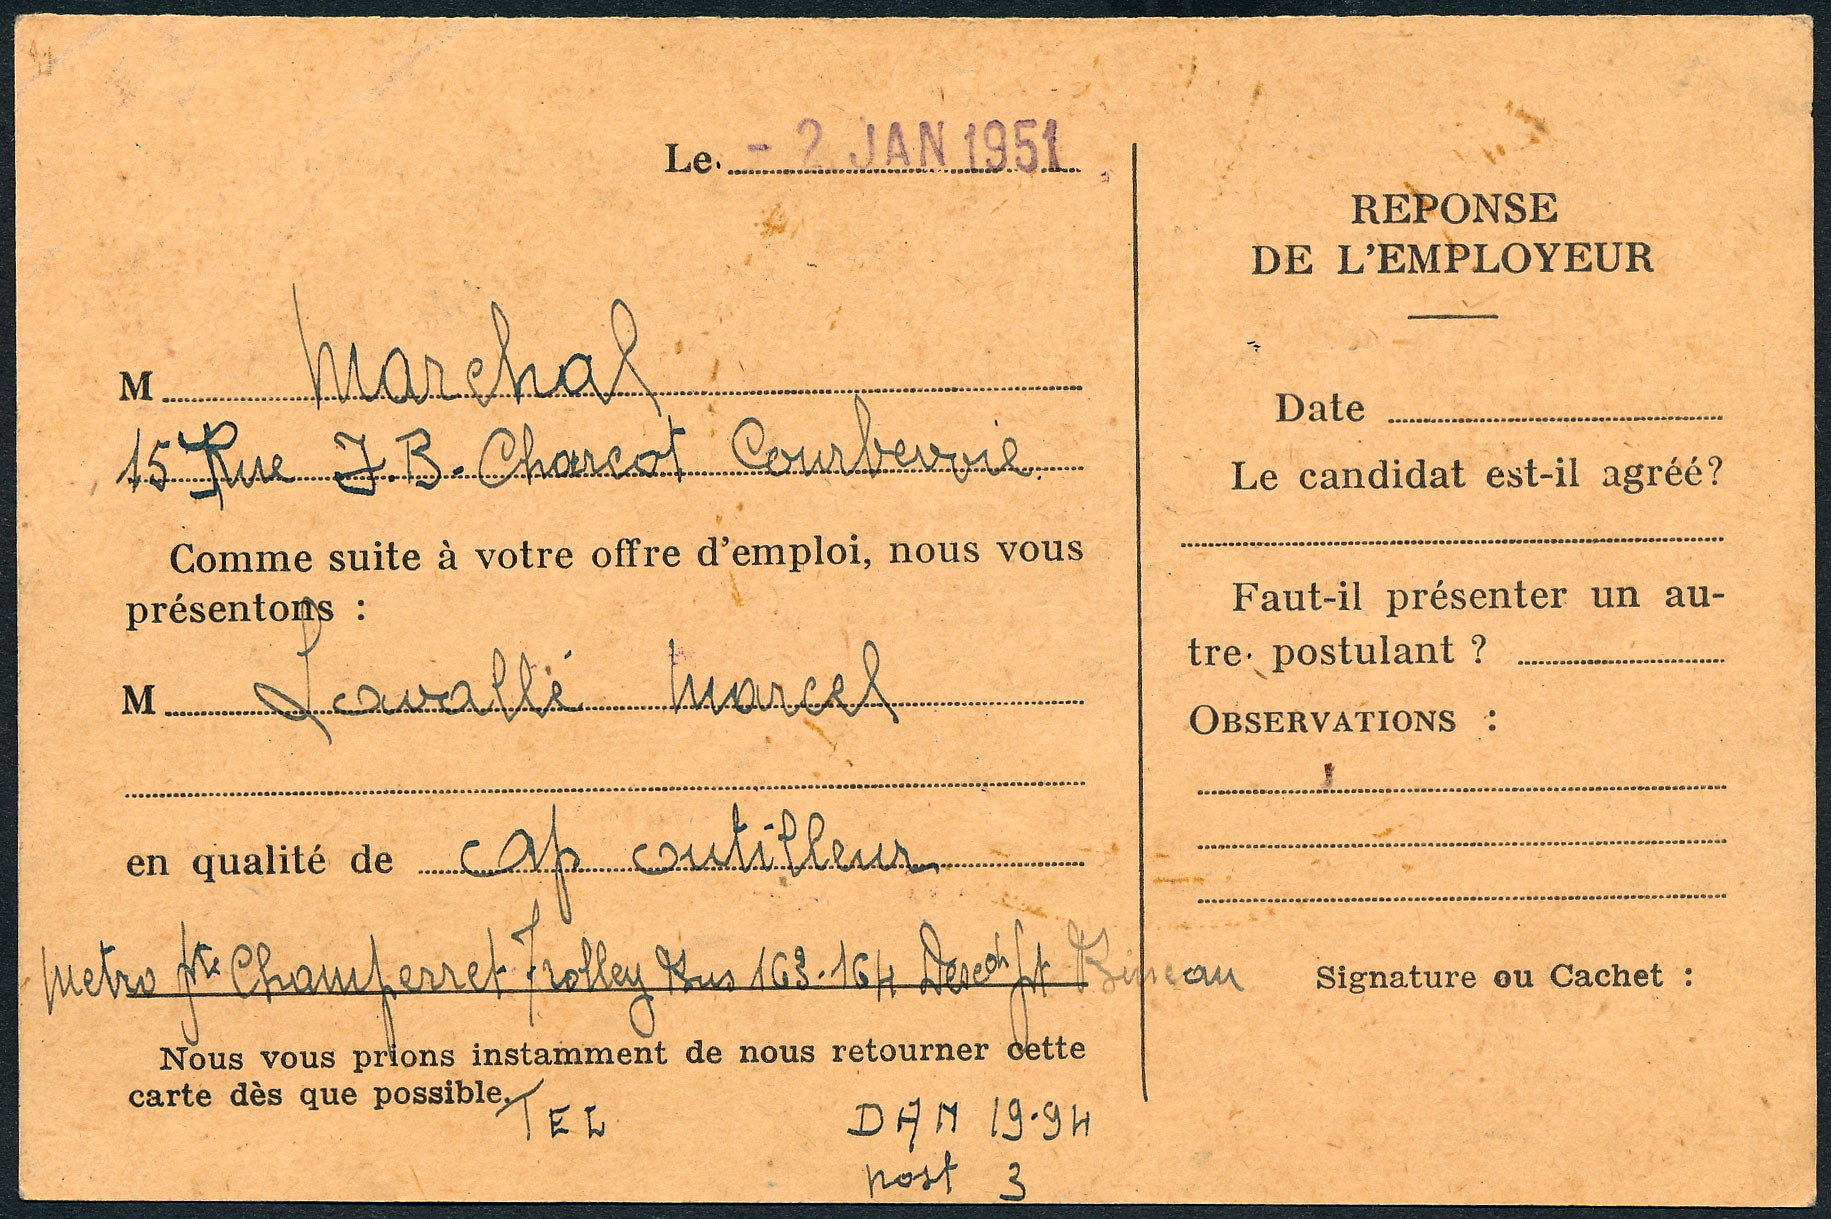 Le - 2 JAN 1951
M Marchal
15 Rue J.B. Charcot Courbevoie.
Comme suite à votre offre d'emploi, nous vous
présentons :
M Lavallé Marcel
en qualité de cap outilleur
Metro pte Champerret Trolley Bus 163-164 Descdr pt Bineau
Nous vous prions instamment de nous retourner cette
carte dès que possible.
TEL DAN 19.94
post 3
REPONSE
DE L'EMPLOYEUR
Date
Le candidat est-il agréé?
Faut-il présenter un au-
tre postulant ?
OBSERVATIONS :
Signature ou Cachet :